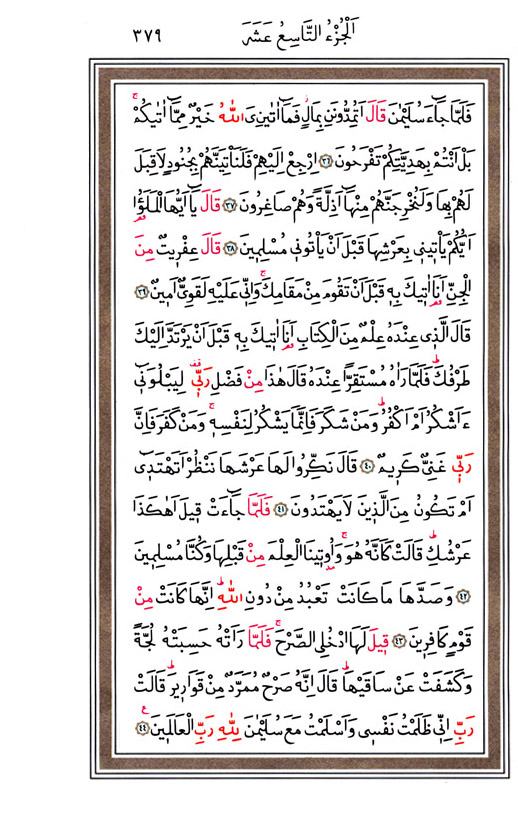 اَلْجُزْءُ التَّاسِعُ عَشَرَ ٣٧٩
فَلَمَّا جَٓاءَ سُلَيْمٰنَ قَالَ اَتُمِدُّونَنِ بِمَالٍۘ فَمَٓا اٰتٰينِيَ اللّٰهُ خَيْرٌ مِمَّٓا اٰتٰيكُمْۚ
بَلْ اَنْتُمْ بِهَدِيَّتِكُمْ تَفْرَحُونَ ﴿٣٦﴾ اِرْجِعْ اِلَيْهِمْ فَلَنَأْتِيَنَّهُمْ بِجُنُودٍ لَا قِبَلَ
لَهُمْ بِهَا وَلَنُخْرِجَنَّهُمْ مِنْهَٓا اَذِلَّةً وَهُمْ صَاغِرُونَ ﴿٣٧﴾ قَالَ يَٓا اَيُّهَا الْمَلَؤُ۬ا
اَيُّكُمْ يَأْتِينِي بِعَرْشِهَا قَبْلَ اَنْ يَأْتُونِي مُسْلِمِينَ ﴿٣٨﴾ قَالَ عِفْرِيتٌ مِنَ
الْجِنِّ اَنَا۬ اٰتِيكَ بِهِ قَبْلَ اَنْ تَقُومَ مِنْ مَقَامِكَۚ وَاِنِّي عَلَيْهِ لَقَوِيٌّ اَمِينٌ ﴿٣٩﴾
قَالَ الَّذِي عِنْدَهُ عِلْمٌ مِنَ الْكِتَابِ اَنَا۬ اٰتِيكَ بِهِ قَبْلَ اَنْ يَرْتَدَّ اِلَيْكَ
طَرْفُكَۜ فَلَمَّا رَاٰهُ مُسْتَقِرًّا عِنْدَهُ قَالَ هٰذَا مِنْ فَضْلِ رَبِّي۠ لِيَبْلُوَنِٓي
ءَاَشْكُرُ اَمْ اَكْفُرُۜ وَمَنْ شَكَرَ فَاِنَّمَا يَشْكُرُ لِنَفْسِهِۚ وَمَنْ كَفَرَ فَاِنَّ
رَبِّي غَنِيٌّ كَرِيمٌ ﴿٤٠﴾ قَالَ نَكِّرُوا لَهَا عَرْشَهَا نَنْظُرْ اَتَهْتَدِٓي
اَمْ تَكُونُ مِنَ الَّذِينَ لَا يَهْتَدُونَ ﴿٤١﴾ فَلَمَّا جَٓاءَتْ قِيلَ اَهٰكَذَا
عَرْشُكِۜ قَالَتْ كَاَنَّهُ هُوَۚ وَاُو۫تِينَا الْعِلْمَ مِنْ قَبْلِهَا وَكُنَّا مُسْلِمِينَ
﴿٤٢﴾ وَصَدَّهَا مَا كَانَتْ تَعْبُدُ مِنْ دُونِ اللّٰهِۜ اِنَّهَا كَانَتْ مِنْ
قَوْمٍ كَافِرِينَ ﴿٤٣﴾ قِيلَ لَهَا ادْخُلِي الصَّرْحَۚ فَلَمَّا رَاَتْهُ حَسِبَتْهُ لُجَّةً
وَكَشَفَتْ عَنْ سَاقَيْهَاۜ قَالَ اِنَّهُ صَرْحٌ مُمَرَّدٌ مِنْ قَوَارِيرَۜ قَالَتْ
رَبِّ اِنِّي ظَلَمْتُ نَفْسِي وَاَسْلَمْتُ مَعَ سُلَيْمٰنَ لِلّٰهِ رَبِّ الْعَالَمِينَ ﴿٤٤﴾ ع